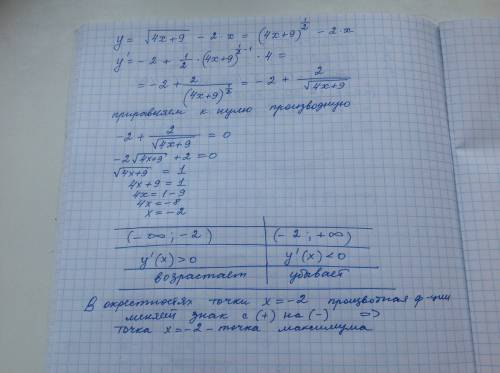 y = √4x+9 − 2·x = (4x+9)^1/2 − 2·x
y' = −2 + 1/2·(4x+9)^1/2−1·4 =
= −2 + 2/(4x+9)^1/2 = −2 + 2/√4x+9
приравняем к нулю производную
−2 + 2/√4x+9 = 0
−2√4x+9 +2=0
√4x+9 = 1
4x+9 = 1
4x=1−9
4x=−8
x=−2
(−∞; −2) (−2; +∞)
y'(x)>0 y'(x)<0
возрастает убывает
В окрестностях точки x=−2 производная ф-ции
меняет знак с (+) на (−) =>
точка x=−2 − точка максимума